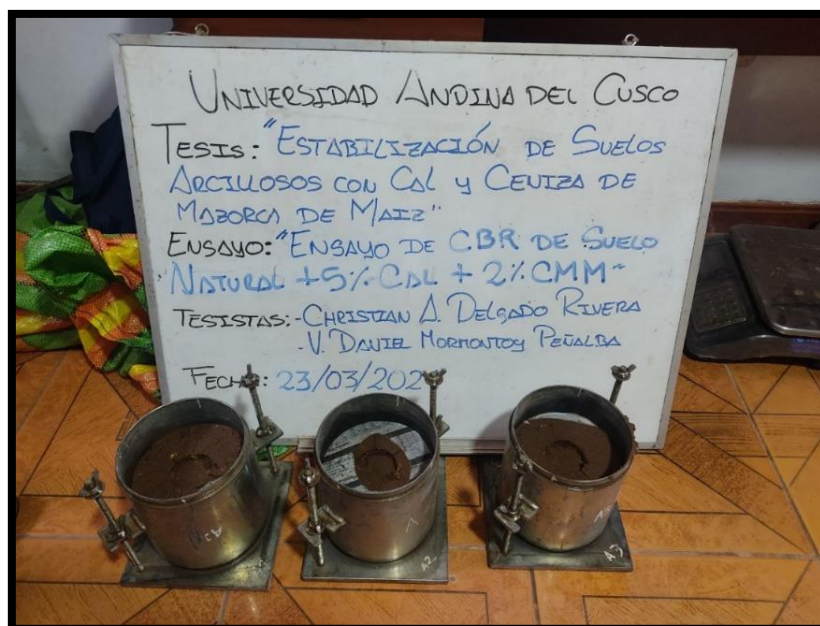 UNIVERSIDAD ANDINA DEL CUSCO
TESIS: "ESTABILIZACIÓN DE SUELOS
ARCILLOSOS CON CAL Y CENIZA DE
MAZORCA DE MAIZ"
ENSAYO: "ENSAYO DE CBR DE SUELO
NATURAL +5% CAL + 2% CMM"
TESISTAS: -CHRISTIAN A. DELGADO RIVERA
-V. DANIEL MORMONTOY PEÑALBA
FECHA: 23/03/202
A2
A3